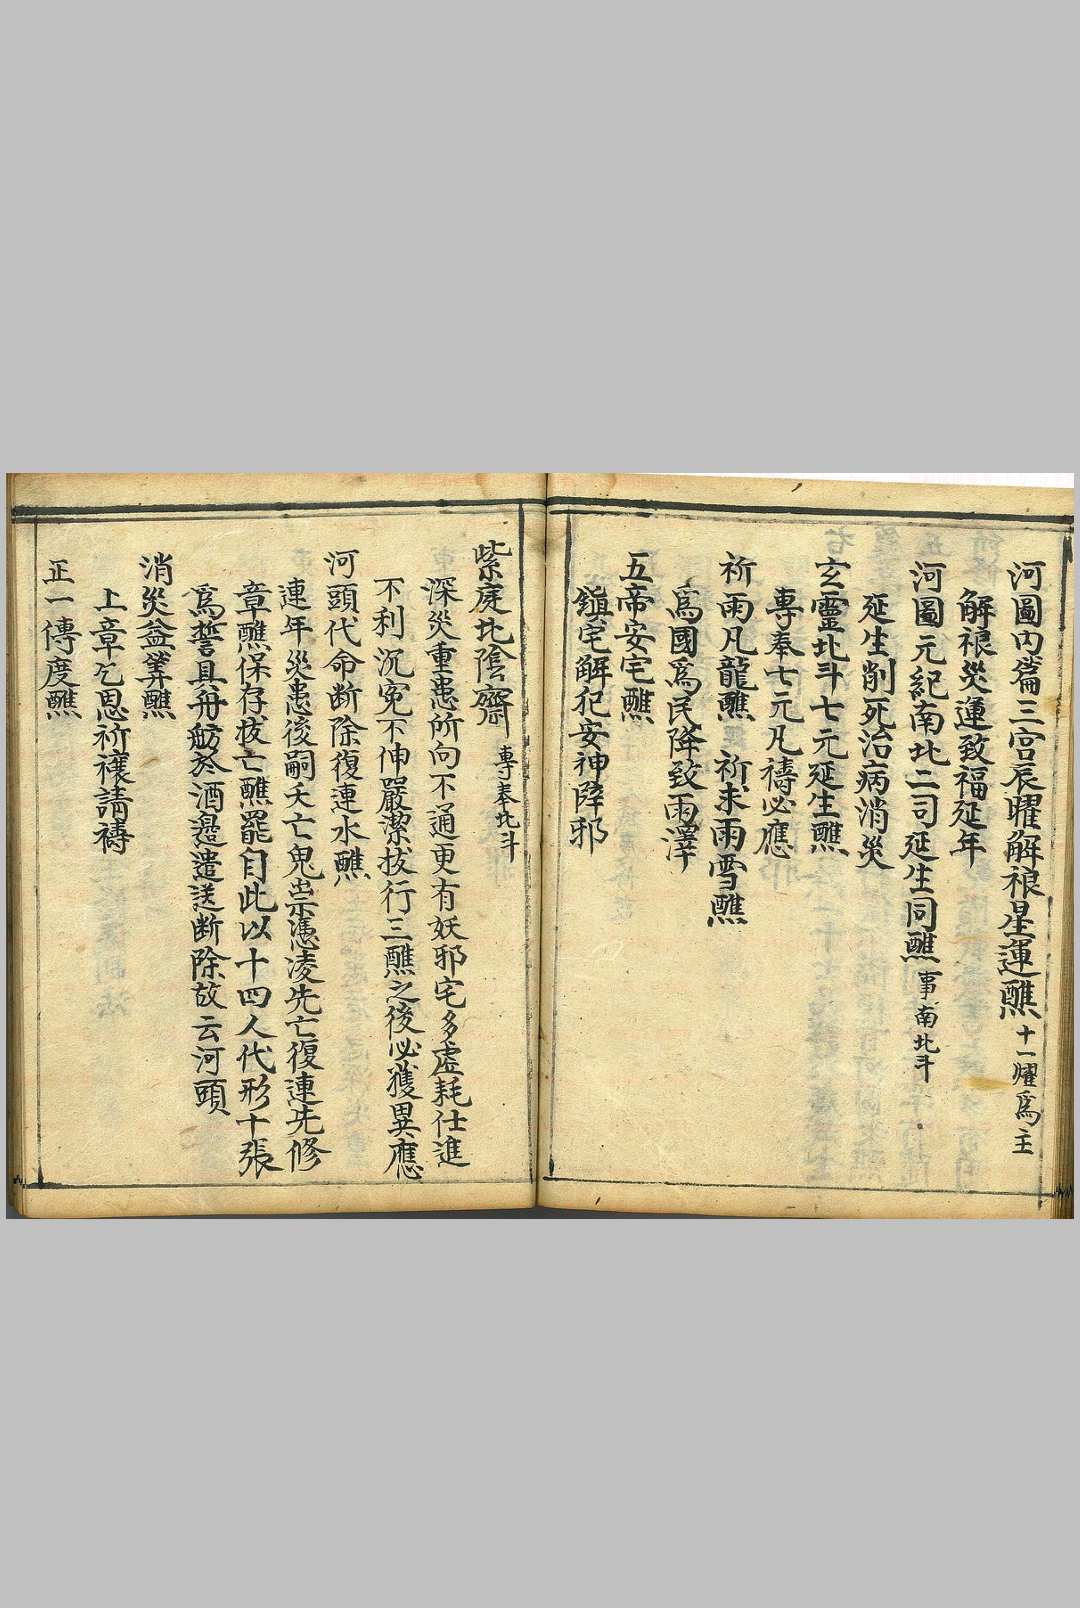 河圖內篇三宮辰曜解祿星運醮 十一耀為主
解祿災運致福延年
河圖元紀南北二司延生同醮 事南北斗
延生削死治病消災
玄靈北斗七元延生醮
專奉七元凡禱必應
祈雨凡龍醮 祈求雨雪醮
為國為民降致雨澤
五帝安宅醮
鎮宅解犯安神降邪
紫庭北陰齋 專奉北斗
深災重患所向不通更有妖邪宅多虛耗仕進
不利沉冤不伸嚴潔拔行三醮之後必獲異應
河頭代命断除復連水醮
連年災患後嗣夭亡鬼祟憑凌先亡復連先修
章醮保存拔亡醮罷自此以十四人代形十張
為誓具舟舫於酒邊遣送断除故云河頭
消災益筭醮
上章乞恩祈禳請禱
正一傳度醮